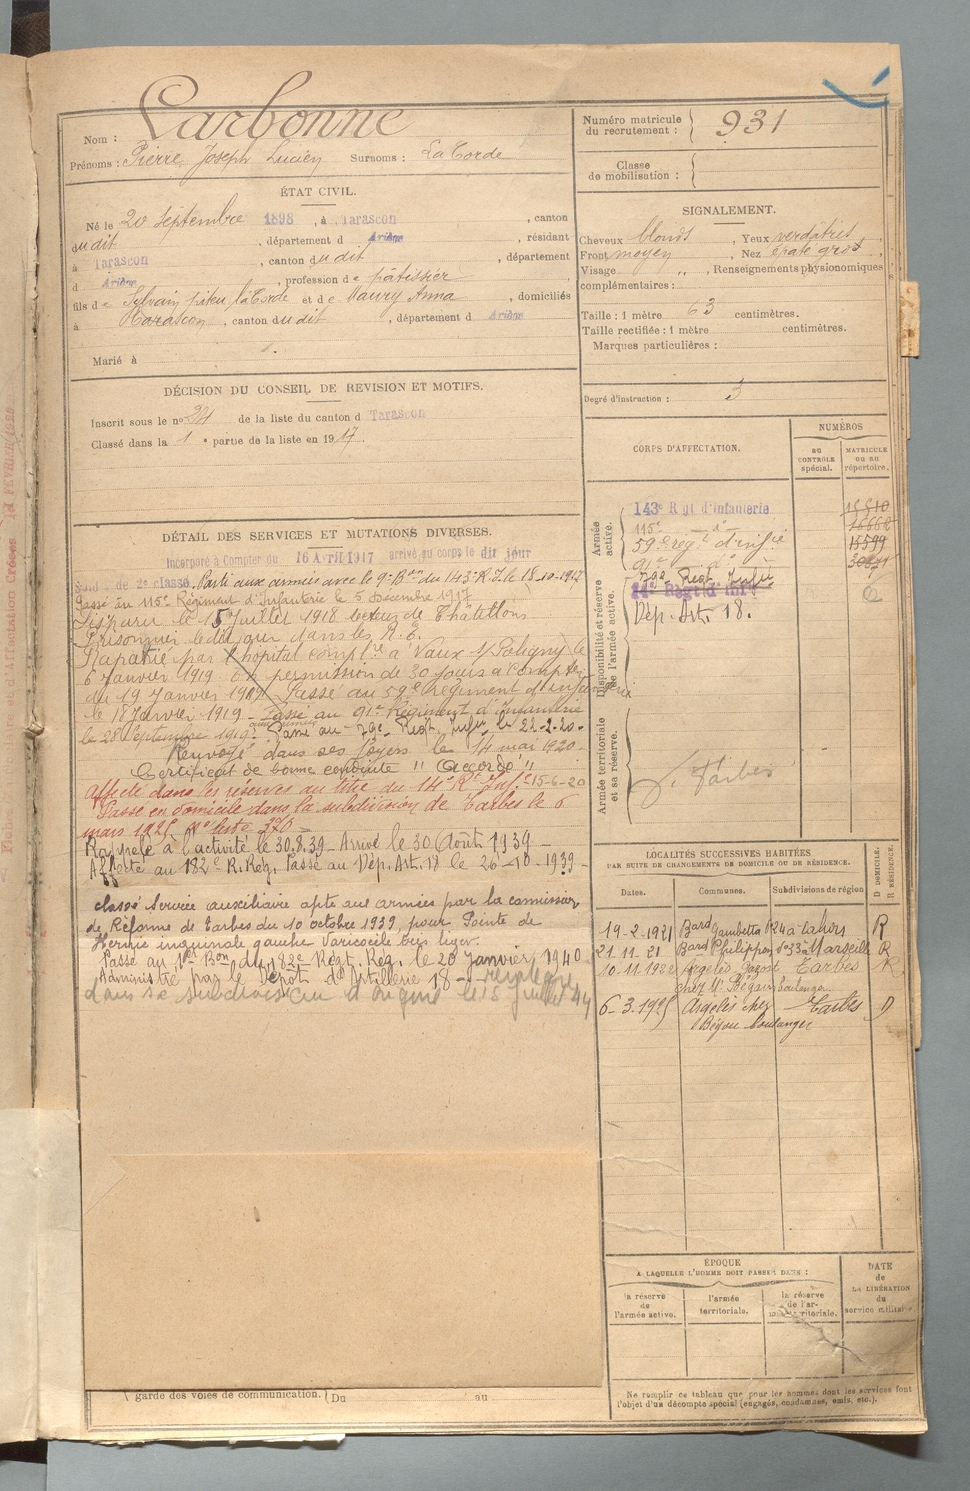 Nom : Carbonne
Prénoms : Pierre Joseph Lucien Surnoms : La Corde
ÉTAT CIVIL.
Né le 20 septembre 1898, à Tarascon, canton
du dit, département d Ariège, résidant
à Tarascon, canton du dit, département
d Ariège, profession de pâtissier
fils de Sylvain dit La Corde et de Maury Anna, domiciliés
à Tarascon, canton du dit, département d Ariège
Marié à
DÉCISION DU CONSEIL DE REVISION ET MOTIFS.
Inscrit sous le no 24 de la liste du canton d Tarascon
Classé dans la 1 e partie de la liste en 1917.
DÉTAIL DES SERVICES ET MUTATIONS DIVERSES.
Incorporé à Compter du 16 Avril 1917 arrivé au corps le dit jour
Sold. de 2e classe. Parti aux armées avec le 9e Bon du 143e R.I. le 18-10-1917
Passé au 115e Régiment d'Infanterie le 5 Décembre 1917
Disparu le 15 Juillet 1918 secteur de Châtillon
Prisonnier le dit jour
Rapatrié par l'hôpital complre à Vaux s/ Poligny le
6 Janvier 1919 En permission de 30 jours à compter
du 19 Janvier 1919. Passé au 59e Régiment d'infanterie
le 18 Janvier 1919 - Passé au 91e Régiment d'Infanterie
le 28 Septembre 1919. Passé au 79e Regt Infie le 22-2-20-
Renvoyé dans ses foyers le 14 mai 1920.
Certificat de bonne conduite "Accordé"
Affecté dans les réserves au titre du 14e Rt Inf. 15-6-20
Passé en domicile dans la subdivision de Tarbes le 6
mars 1925 No liste 370
Rappelé à l'activité le 30.8.39 - Arrivé le 30 Août 1939 -
Affecté au 182e R. Rég. Passé au Dép. Art. 18 le 26-10-1939 -
classé Service auxiliaire apte aux armées par la commission
de Réforme de Tarbes du 10 octobre 1939, pour Pointe de
Hernie inguinale gauche Varicocèle très léger.
Passé au 1er Bon du 182e Régt. Rég. le 20 Janvier 1940
Administré par le Dépôt d'Artillerie 18 -
dans sa subdivision d'origine le 15 Juillet 44
garde des voies de communication. Du au
Numéro matricule du recrutement : 931
Classe de mobilisation :
SIGNALEMENT.
Cheveux blonds, Yeux verdâtres,
Front moyen, Nez épaté gros,
Visage ", Renseignements physionomiques
complémentaires :
Taille : 1 mètre 63 centimètres.
Taille rectifiée : 1 mètre centimètres.
Marques particulières :
Degré d'instruction : 3
CORPS D'AFFECTATION.
NUMÉROS
au CONTRÔLE spécial.
MATRICULE ou au répertoire.
Armée active.
143e Rgt d'Infanterie
115e - d° -
59e régt d'infie 13599
91e d°
Disponibilité et réserve de l'armée active.
79e Regt Infie
14e Régt d'Infie
Dép. Art. 18.
Armée territoriale et sa réserve.
S. Tarbes
LOCALITÉS SUCCESSIVES HABITÉES
PAR SUITE DE CHANGEMENTS DE DOMICILE OU DE RÉSIDENCE.
Dates. Communes. Subdivisions de région
D DOMICILE. R RÉSIDENCE.
19-2-1921 Bard Gambetta 24 à Cahors R
21.11.21 Bard Philippon no 33 à Marseille R
10.11.1922 Argelès Gazost Tarbes R
chez Mr Bégou boulanger
6-3.1925 Argelès chez Tarbes D
Bégou boulanger
ÉPOQUE
A LAQUELLE L'HOMME DOIT PASSER DANS :
la réserve de l'armée active.
l'armée territoriale.
la réserve de l'armée territoriale.
DATE de LA LIBÉRATION du service militaire
Ne remplir ce tableau que pour les hommes dont les services font
l'objet d'un décompte spécial (engagés, condamnés, omis, etc.).